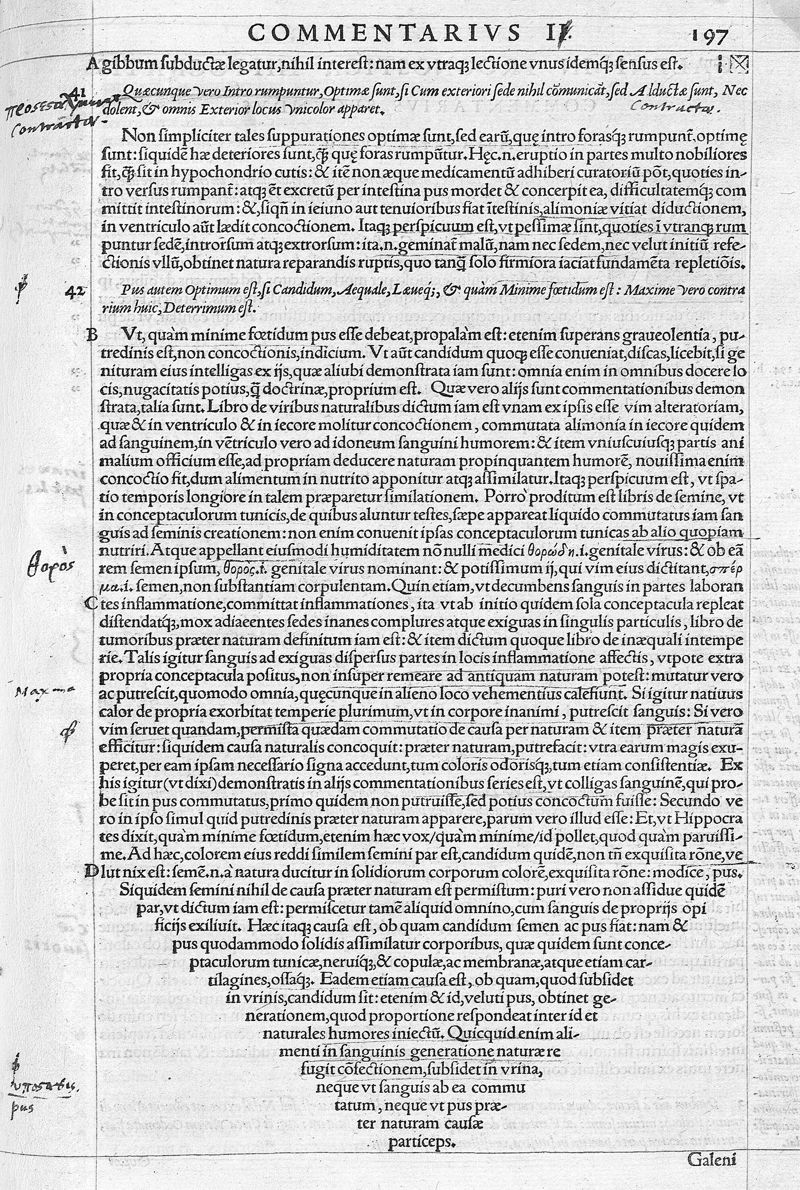 COMMENTARIVS II.
197
A gibbum subductæ legatur, nihil interest: nam ex vtraq; lectione vnus idemq; sensus est.
41 Quæcunque vero Intro rumpuntur, Optimæ sunt, si Cum exteriori sede nihil cōmunicāt, sed Alductæ sunt, Nec
dolent, & omnis Exterior locus vnicolor apparet.
contractæ.
contractæ.
Non simpliciter tales suppurationes optimæ sunt, sed earū, quę intro forasq; rumpunt̄. optimę
sunt: siquidem hæ deteriores sunt, q̃ quę foras rumpūtur. Hęc .n. eruptio in partes multo nobiliores
fit, q̃ sit in hypochondrio cutis: & itē non æque medicamentū adhiberi curatoriū pōt, quoties in-
tro versus rumpant̄: atq; ēt excretū per intestina pus mordet & concerpit ea, difficultatemq; com
mittit intestinorum: &, siqñ in ieiuno aut tenuioribus fiat ītestinis, alimoniæ vitiat diductionem,
in ventriculo aūt lædit concoctionem. Itaq; perspicuum est, vt pessimæ sint, quoties ī vtranq; rum
puntur sedē, introrsum atq; extrorsum: ita .n. geminat̄ malū, nam nec sedem, nec velut initiū refe-
ctionis vllū, obtinet natura reparandis ruptis, quo tanq̄ solo firmiora iaciat fundamēta repletiōis.
42 Pus autem Optimum est, si Candidum, Aequale, Læueq;, & quàm Minime fœtidum est: Maxime vero contra
rium huic, Deterrimum est.
B Vt, quàm minime fœtidum pus esse debeat, propalàm est: etenim superans graueolentia, pu-
tredinis est, non concoctionis, indicium. Vt aūt candidum quoq; esse conueniat, discas, licebit, si ge
nituram eius intelligas ex ijs, quæ aliubi demonstrata iam sunt: omnia enim in omnibus docere lo
cis, nugacitatis potius, q̃ doctrinæ, proprium est. Quæ vero alijs sunt commentationibus demon
strata, talia sunt. Libro de viribus naturalibus dictum iam est vnam ex ipsis esse vim alteratoriam,
quæ & in ventriculo & in iecore molitur concoctionem, commutata alimonia in iecore quidem
ad sanguinem, in vētriculo vero ad idoneum sanguini humorem: & item vniuscuiusq; partis ani
malium officium esse, ad propriam deducere naturam propinquantem humorē, nouissima enim
concoctio fit, dum alimentum in nutrito apponitur atq; assimilatur. Itaq; perspicuum est, vt spa-
tio temporis longiore in talem præparetur similationem. Porro proditum est libris de semine, vt
in conceptaculorum tunicis, de quibus aluntur testes, sæpe appareat liquido commutatus iam san
guis ad seminis creationem: non enim conuenit ipsas conceptaculorum tunicas ab alio quopiam
nutriri. Atque appellant eiusmodi humiditatem nō nulli medici θορώδη .i. genitale virus: & ob eā
θορὸς
rem semen ipsum, θορὸς .i. genitale virus nominant: & potissimum ij, qui vim eius dictitant, σπέρ
μα .i. semen, non substantiam corpulentam. Quin etiam, vt decumbens sanguis in partes laboran
C tes inflammatione, committat inflammationes, ita vt ab initio quidem sola conceptacula repleat
distendatq;, mox adiacentes sedes inanes complures atque exiguas in singulis particulis, libro de
tumoribus præter naturam definitum iam est: & item dictum quoque libro de inæquali intempe
rie. Talis igitur sanguis ad exiguas dispersus partes in locis inflammatione affectis, vtpote extra
propria conceptacula positus, non insuper remeare ad antiquam naturam potest: mutatur vero
Maxime
ac putrescit, quomodo omnia, quęcunque in alieno loco vehementius calefiunt. Si igitur natiuus
calor de propria exorbitat temperie plurimum, vt in corpore inanimi, putrescit sanguis: Si vero
vim seruet quandam, permista quædam commutatio de causa per naturam & item præter naturā
efficitur: siquidem causa naturalis concoquit: præter naturam, putrefacit: vtra earum magis exu-
peret, per eam ipsam necessario signa accedunt, tum coloris odorisq;, tum etiam consistentiæ. Ex
his igitur (vt dixi) demonstratis in alijs commentationibus series est, vt colligas sanguinē, qui pro-
be sit in pus commutatus, primo quidem non putruisse, sed potius concoctum fuisse: Secundo ve
ro in ipso simul quid putredinis præter naturam apparere, parum vero illud esse: Et, vt Hippocra
tes dixit, quàm minime fœtidum, etenim hæc vox/quàm minime/id pollet, quod quàm paruissi-
me. Ad hæc, colorem eius reddi similem semini par est, candidum quidē, non tn̄ exquisita rōne, ve
D lut nix est: semē .n. à natura ducitur in solidiorum corporum colorē, exquisita rōne: modice, pus.
Siquidem semini nihil de causa præter naturam est permistum: puri vero non assidue quidē
par, vt dictum iam est: permiscetur tamē aliquid omnino, cum sanguis de proprijs opi
ficijs exiliuit. Hæc itaq; causa est, ob quam candidum semen ac pus fiat: nam &
pus quodammodo solidis assimilatur corporibus, quæ quidem sunt conce-
ptaculorum tunicæ, neruiq;, & copulæ, ac membranæ, atque etiam car-
tilagines, ossaq;. Eadem etiam causa est, ob quam, quod subsidet
in vrinis, candidum sit: etenim & id, veluti pus, obtinet ge-
nerationem, quod proportione respondeat inter id et
naturales humores iniectū. Quicquid enim ali-
menti in sanguinis generatione naturæ re
fugit cōfectionem, subsidet in vrina,
neque vt sanguis ab ea commu
tatum, neque vt pus præ-
ter naturam causæ
particeps.
ὑπόστασις.
pus
Galeni